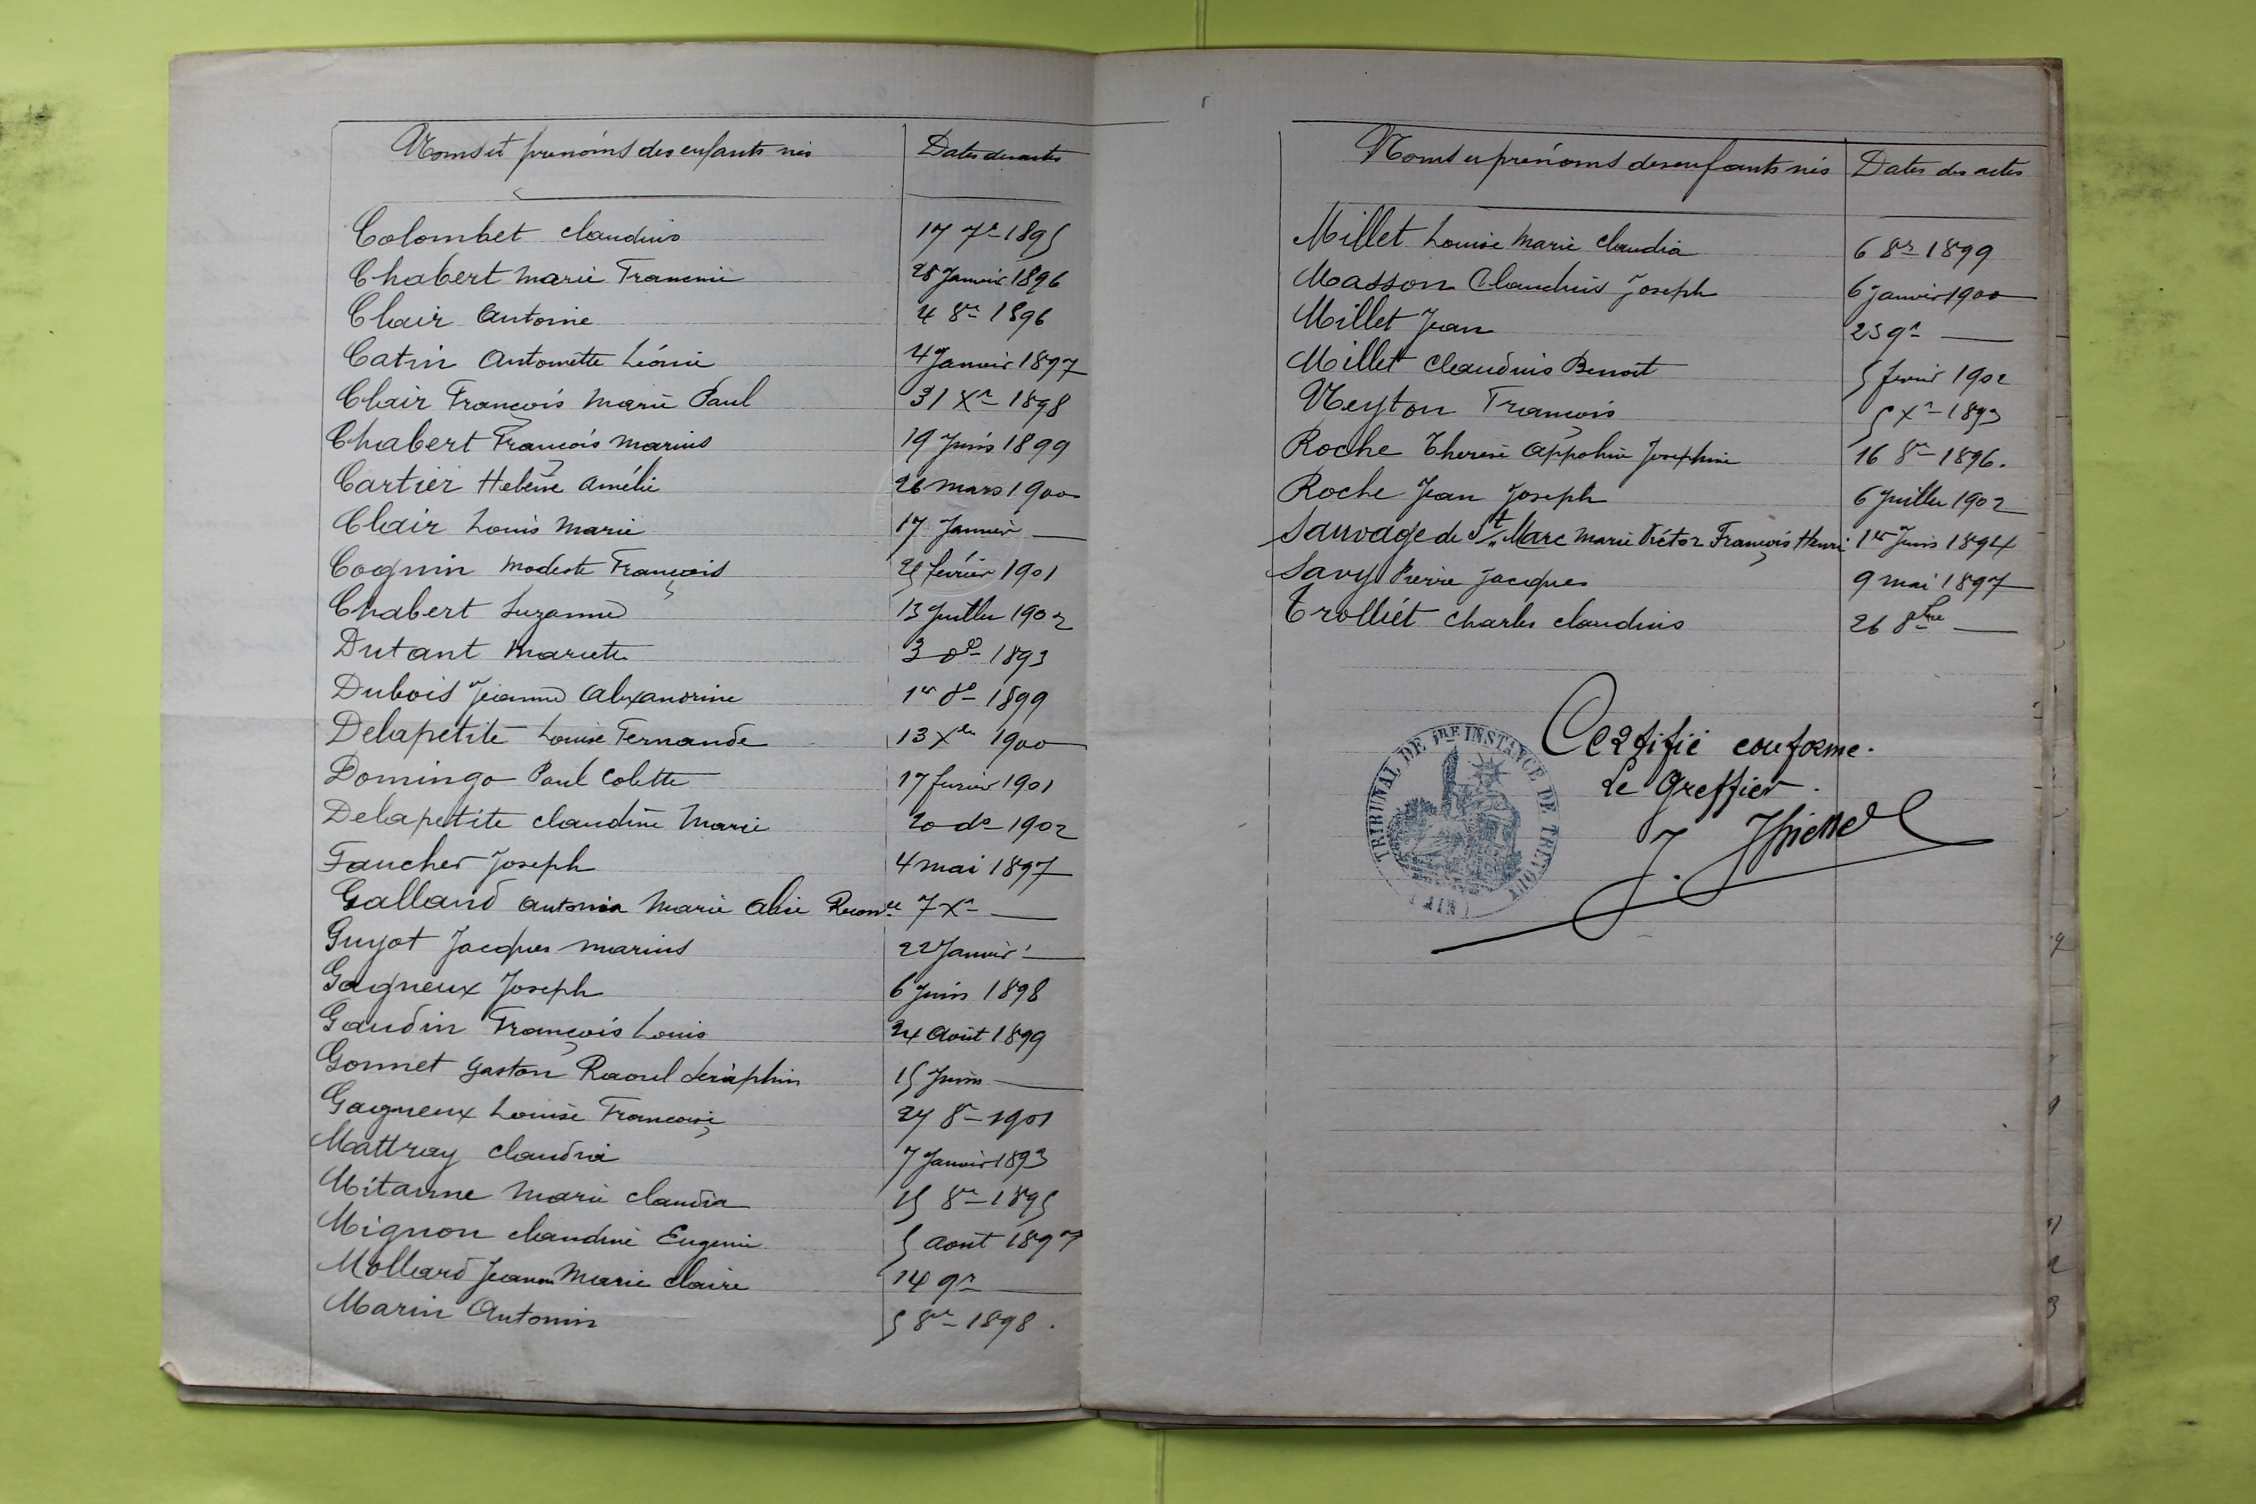 Noms et prénoms des enfants nés Dates des actes
Colombet Claudius 17 7e 1895
Chabert Marie Francine 28 Janvier 1896
Clair Antoine 4 8re 1896
Catin Antoinette Léonie 4 Janvier 1897
Clair François Marie Paul 31 Xre 1898
Chabert François Marius 19 Juin 1899
Cartier Helène Amélie 26 mars 1900
Clair Louis Marie 17 Janvier —
Cognin Modeste François février 1901
Chabert Suzanne 13 Juillet 1902
Dutant Mariette 3 1893
Dubois Jeanne Alexandrine 1er 1899
Delapetite Louise Fernande 13 Xre 1900
Domingo Paul Colette 17 février 1901
Delapetite Claudine Marie 20 do 1902
Faucher Joseph 4 mai 1897
Galland Antonia Marie Alice 7 Xre —
Guyot Jacques Marius 22 Janvier —
Gagneux Joseph 6 Juin 1898
Gaudin François Louis 24 Août 1899
Gonnet Gaston Raoul Séraphin 15 Juin —
Gagneux Louise Françoise 27 8re 1901
Mattray Claudia 7 Janvier 1893
Mitanne Marie Claudia 15 8re 1895
Mignon Claudine Eugenie 5 août 1897
Mollard Jeanne Marie Claire 14 9re —
Marin Antonin 5 8re 1898.
Noms et prénoms des enfants nés Dates des actes
Millet Louise Marie Claudia 6 8re 1899
Masson Claudius Joseph 6 janvier 1900
Millet Jean 23 9re —
Millet Claudius Benoit 5 février 1902
Neyton François 5 Xre 1893
Roche Therese Appoline Josephine 16 8re 1896.
Roche Jean Joseph 6 Juillet 1902
Sauvage de St Marc Marie Victor François Henri 1er Juin 1894
Savy Pierre Jacques 9 mai 1897
Trolliét Charles Claudius 26 8bre —
Certifié conforme.
Le Greffier.
TRIBUNAL DE 1RE INSTANCE DE TRÉVOUX (AIN)